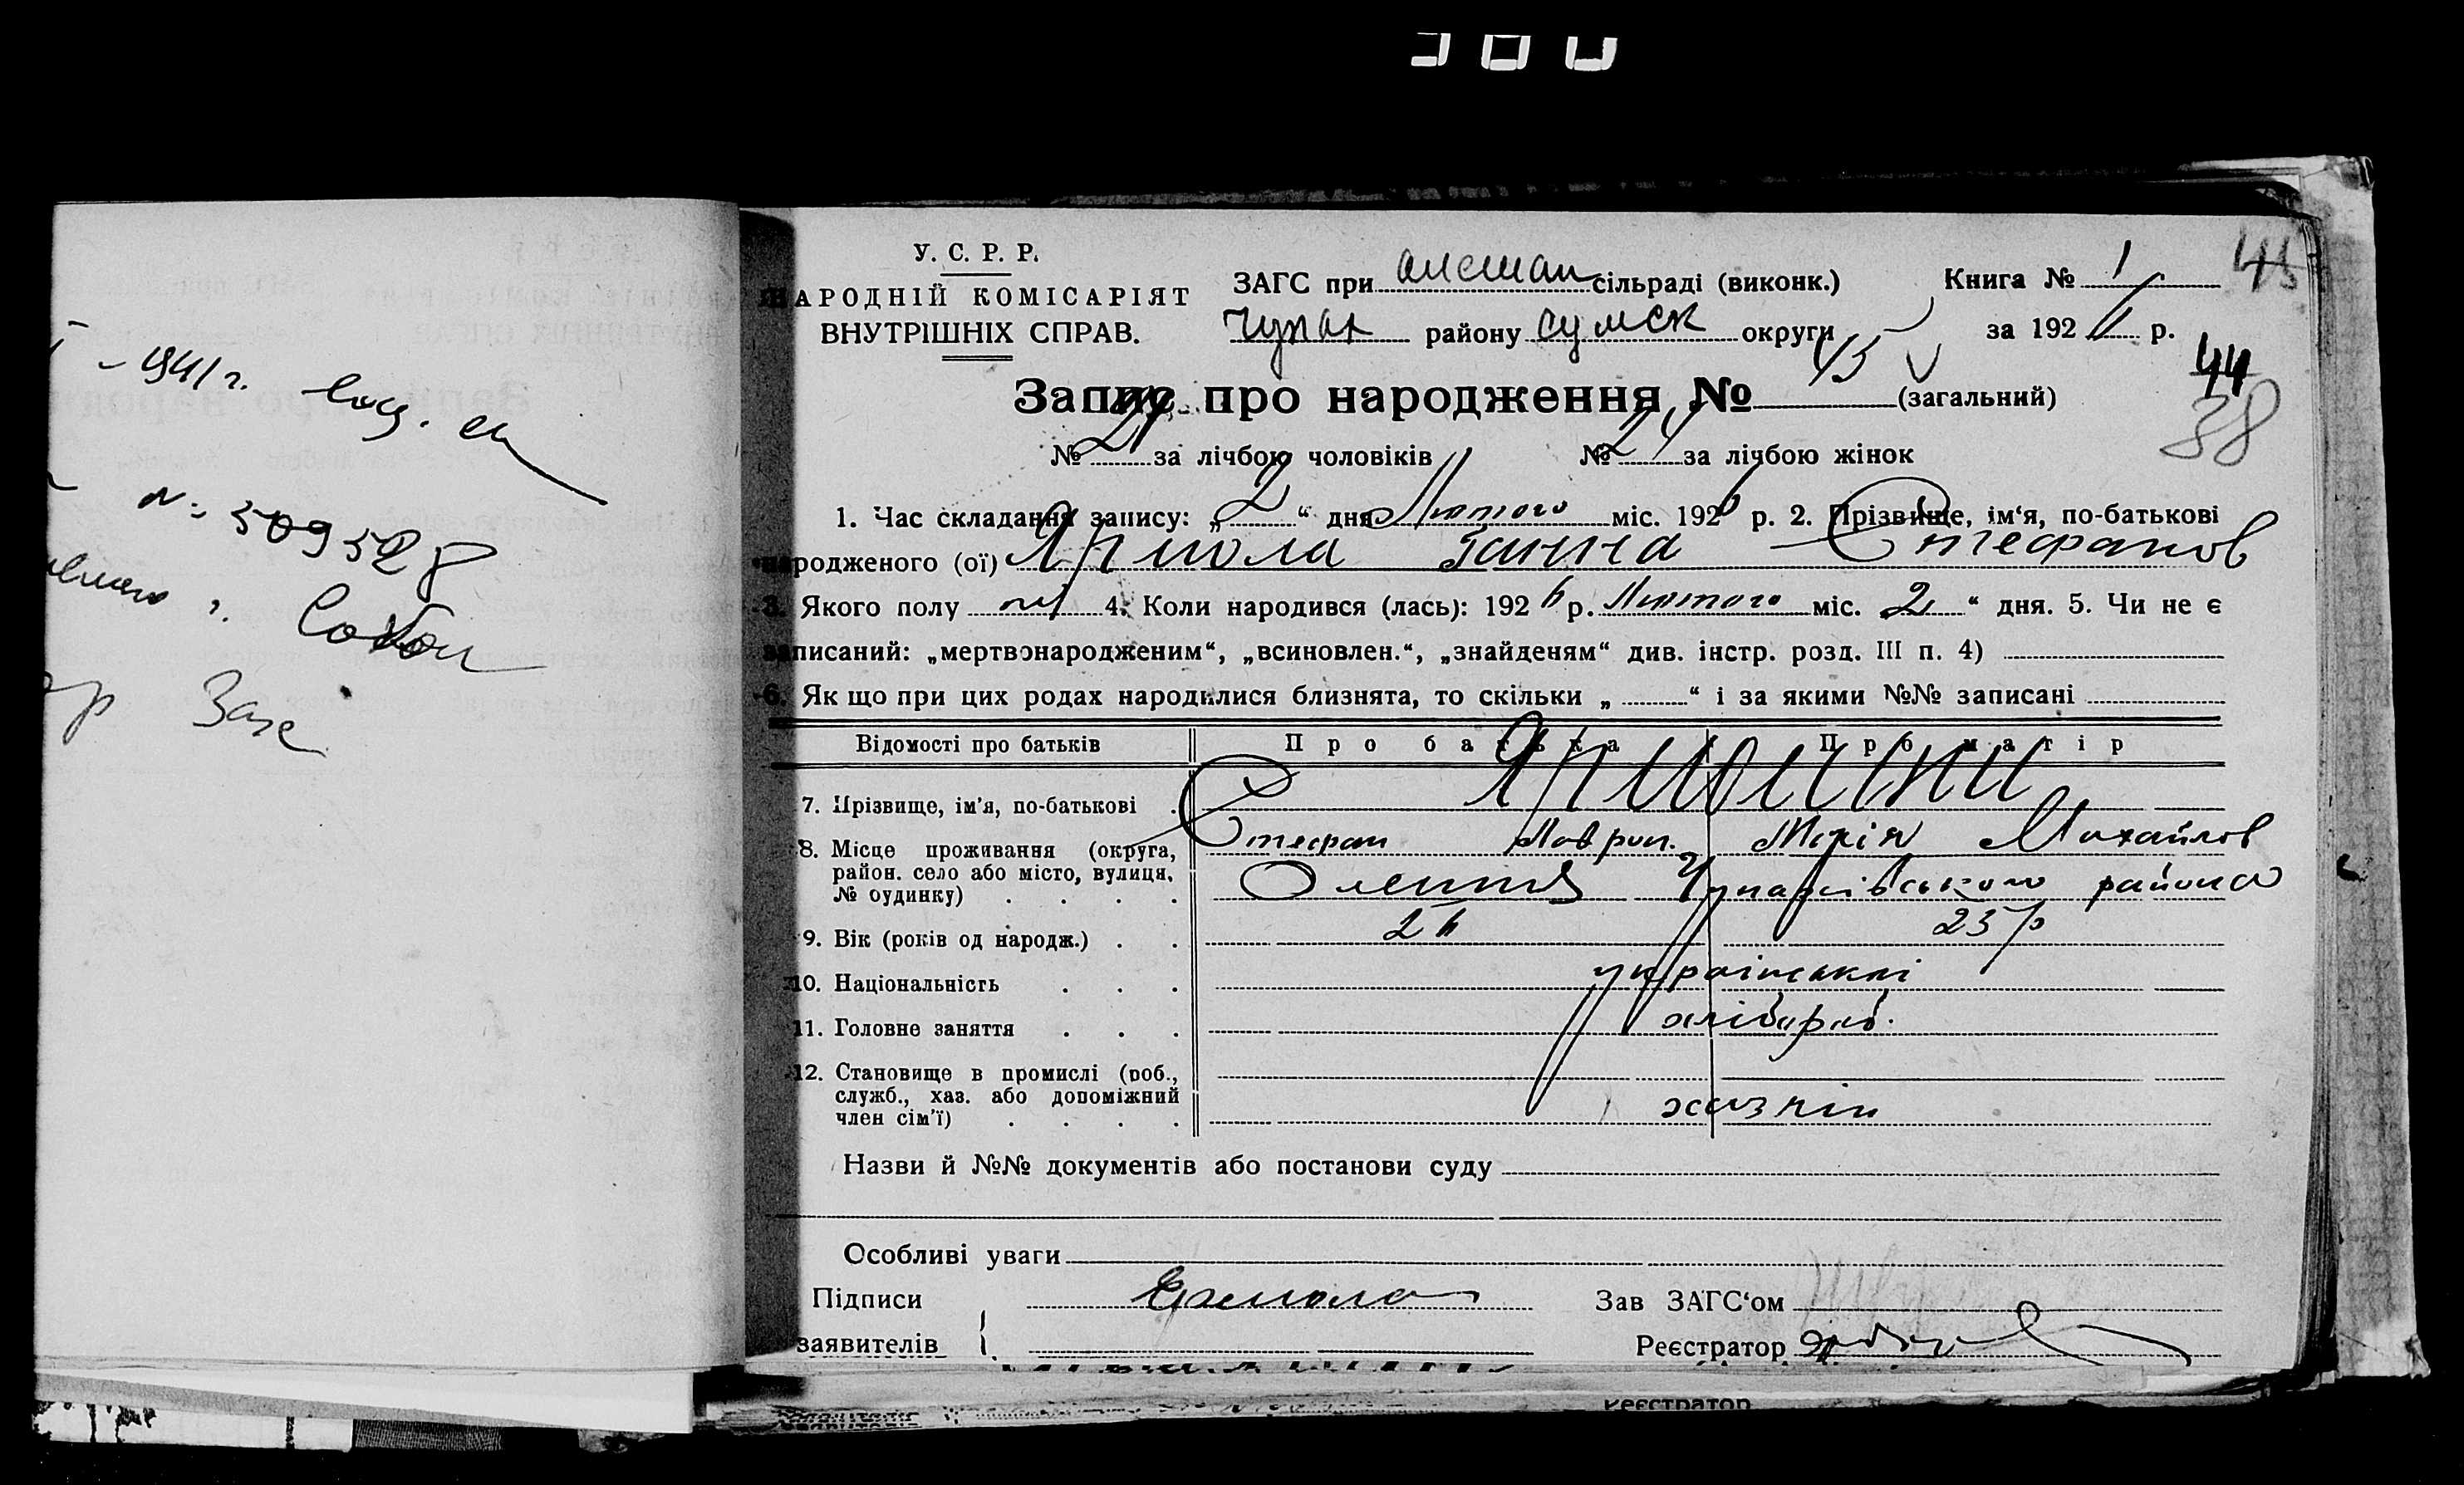 1941 г.
№ 309528
Заг
У. С. Р. Р.
НАРОДНІЙ КОМІСАРІЯТ
ВНУТРІШНІХ СПРАВ.
ЗАГС при олешан сільраді (виконк.)
Чупах району Сумск округи
Книга № 1
за 1926 р.
45
44
38
Запис про народження № 45 (загальний)
№ 21 за лічбою чоловіків № 24 за лічбою жінок
1. Час складання запису: „2“ дня Лютого міс. 1926 р. 2. Прізвище, ім‘я, по-батькові
народженого (ої) Ярмола Ганна Стефанов
3. Якого полу 4. Коли народився (лась): 1926 р. Лютого міс. 2 “ дня. 5. Чи не є
записаний: „мертвонародженим“, „всиновлен.“, „знайденям“ див. інстр. розд. III п. 4)
6. Як що при цих родах народилися близнята, то скільки „ “ і за якими №№ записані
Відомості про батьків Про батька Про матір
7. Прізвище, ім'я, по-батькові Ярмолини
Стефан Лаврин. Марія Михайлов
8. Місце проживання (округа, район. село або місто, вулиця, № будинку) Олешня Чупахівського района
9. Вік (років од народж.) 26 25 р
10. Національність українські
11. Головне заняття хлібороб.
12. Становище в промислі (роб., служб., хаз. або допоміжний член сім'ї) хазяїн
Назви й №№ документів або постанови суду
Особливі уваги
Підписи Ермола Зав ЗАГС‘ом
заявителів Реєстратор
Реєстратор